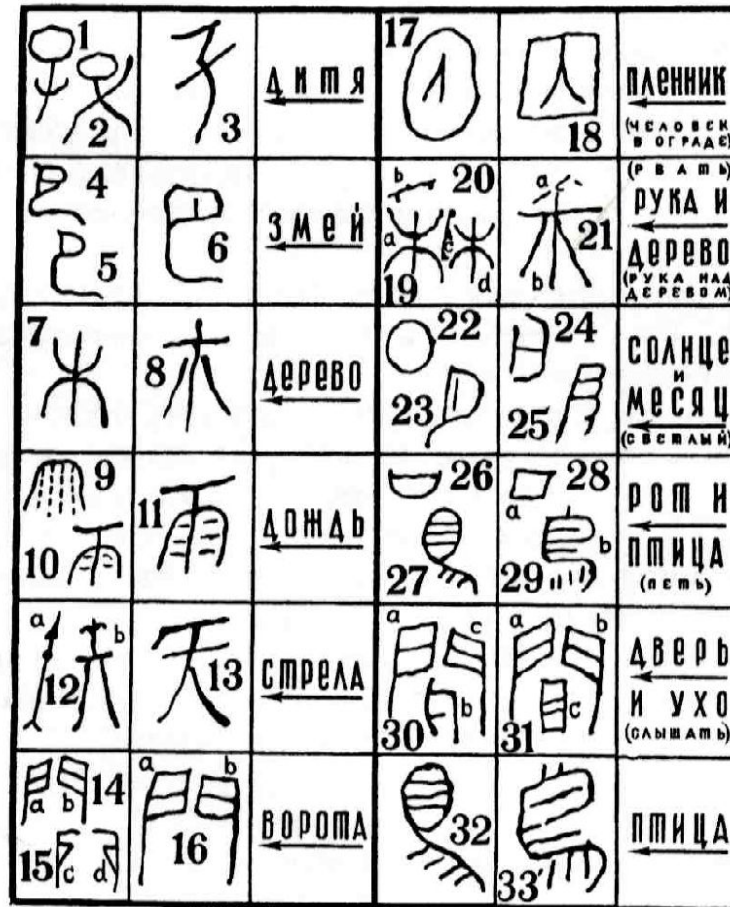 1
2
3
ДИТЯ
17
18
ПЛЕННИК
(ЧЕЛОВЕК
В ОГРАДЕ)
4
5
6
ЗМЕЙ
b 20
a c d
19
a 21
b
(РВАТЬ)
РУКА И
ДЕРЕВО
(РУКА НАД
ДЕРЕВОМ)
7
8
ДЕРЕВО
22
23
24
25
СОЛНЦЕ
И
МЕСЯЦ
(СВЕТЛЫЙ)
9
10
11
ДОЖДЬ
26
27
28
a b
29
РОТ И
ПТИЦА
(ПЕТЬ)
a b
12
13
СТРЕЛА
a c
b
30
a b
c
31
ДВЕРЬ
И УХО
(СЛЫШАТЬ)
a b 14
15 c d
a b
16
ВОРОТА
32
33
ПТИЦА